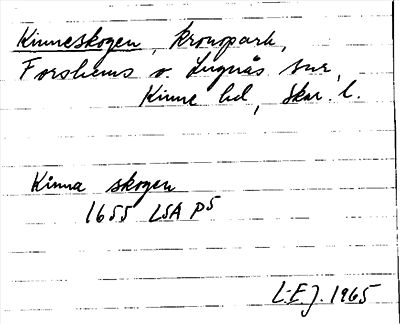 Kinneskogen, kronopark,
Forshems o. Lugnås snr,
Kinne hd, Skar. l.
Kinna skogen
1655 LSA P5
L-E.J. 1965